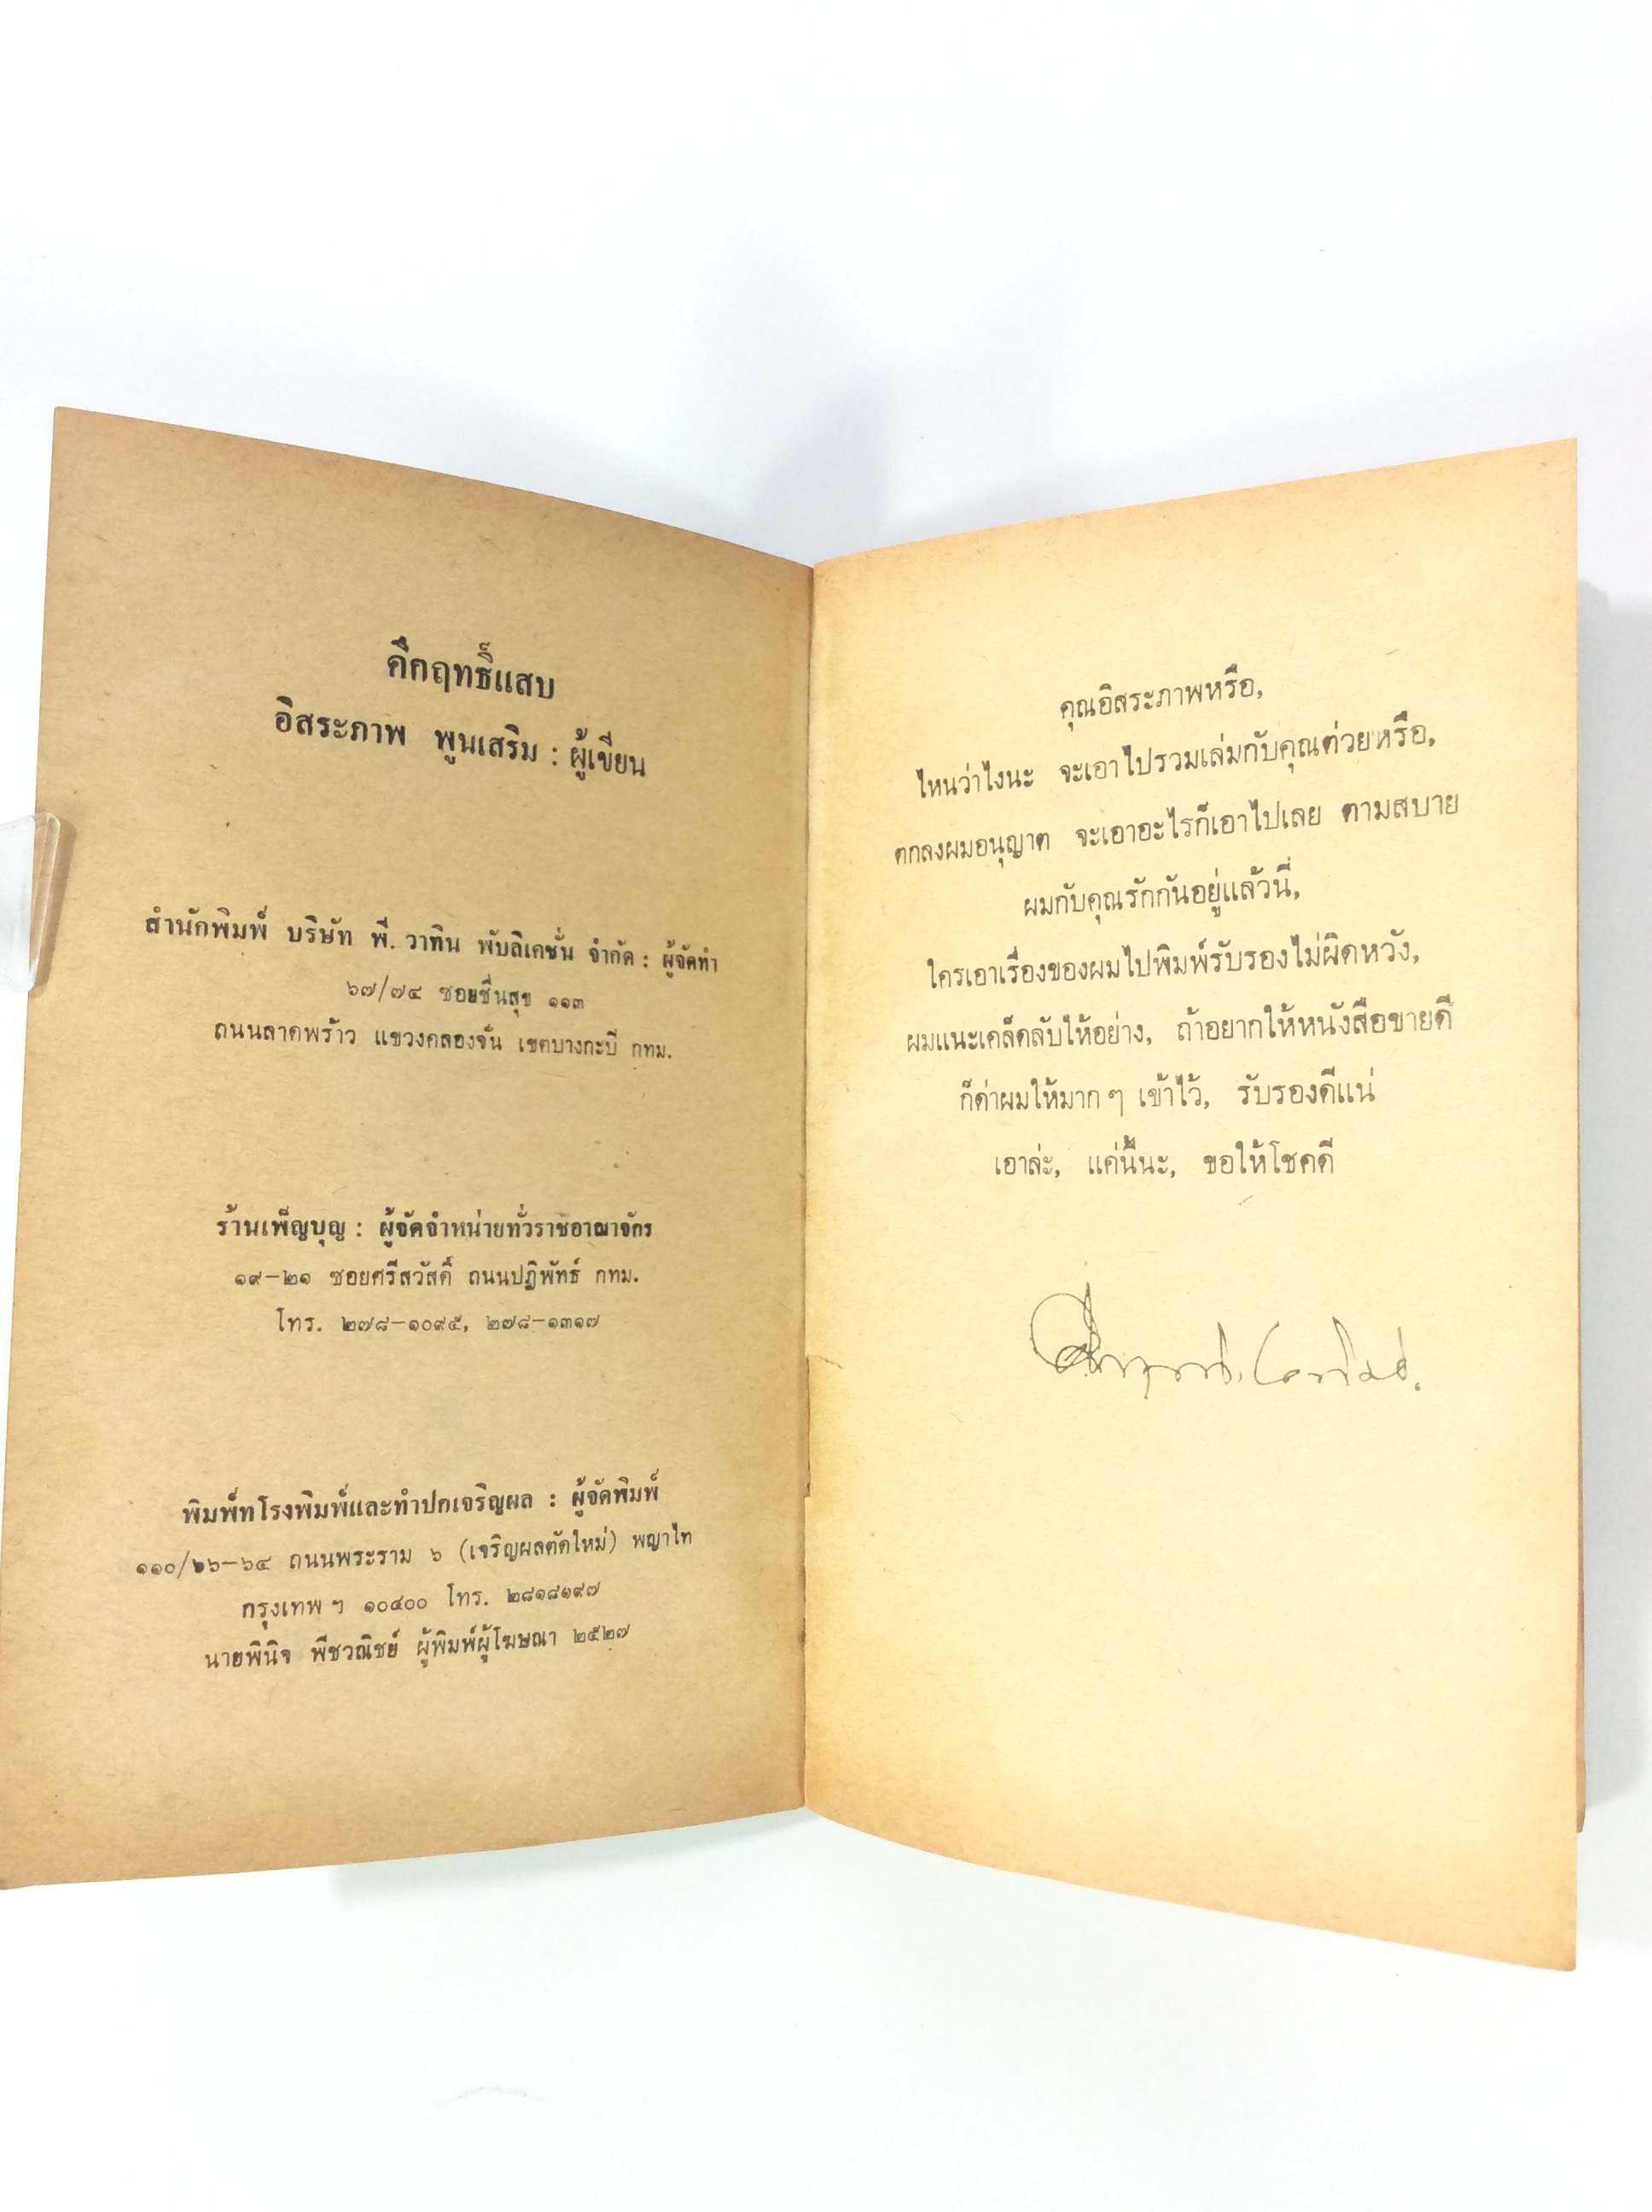 คึกฤทธิ์แสบ
อิสระภาพ พูนเสริม : ผู้เขียน
สำนักพิมพ์ บริษัท พี. วาทิน พับลิเคชั่น จำกัด : ผู้จัดทำ
๖๗/๗๔ ซอยชื่นสุข ๑๑๓
ถนนลาดพร้าว แขวงคลองจั่น เขตบางกะปี กทม.
ร้านเพ็ญบุญ : ผู้จัดจำหน่ายทั่วราชอาณาจักร
๑๙-๒๑ ซอยศรีสวัสดิ์ ถนนปฏิพัทธ์ กทม.
โทร. ๒๗๘-๑๐๙๕, ๒๗๘-๑๓๑๗
พิมพ์ที่โรงพิมพ์และทำปกเจริญผล : ผู้จัดพิมพ์
๑๑๐/๒๖-๖๔ ถนนพระราม ๖ (เจริญผลตัดใหม่) พญาไท
กรุงเทพ ฯ ๑๐๔๐๐ โทร. ๒๘๑๘๑๙๗
นายพินิจ พืชวณิชย์ ผู้พิมพ์ผู้โฆษณา ๒๕๒๗
คุณอิสระภาพหรือ,
ไหนว่าไงนะ จะเอาไปรวมเล่มกับคุณต่วยหรือ,
ตกลงผมอนุญาต จะเอาอะไรก็เอาไปเลย ตามสบาย
ผมกับคุณรักกันอยู่แล้วนี่,
ใครเอาเรื่องของผมไปพิมพ์รับรองไม่ผิดหวัง,
ผมแนะเคล็ดลับให้อย่าง, ถ้าอยากให้หนังสือขายดี
ก็ด่าผมให้มาก ๆ เข้าไว้, รับรองดีแน่
เอาล่ะ, แค่นี้นะ, ขอให้โชคดี